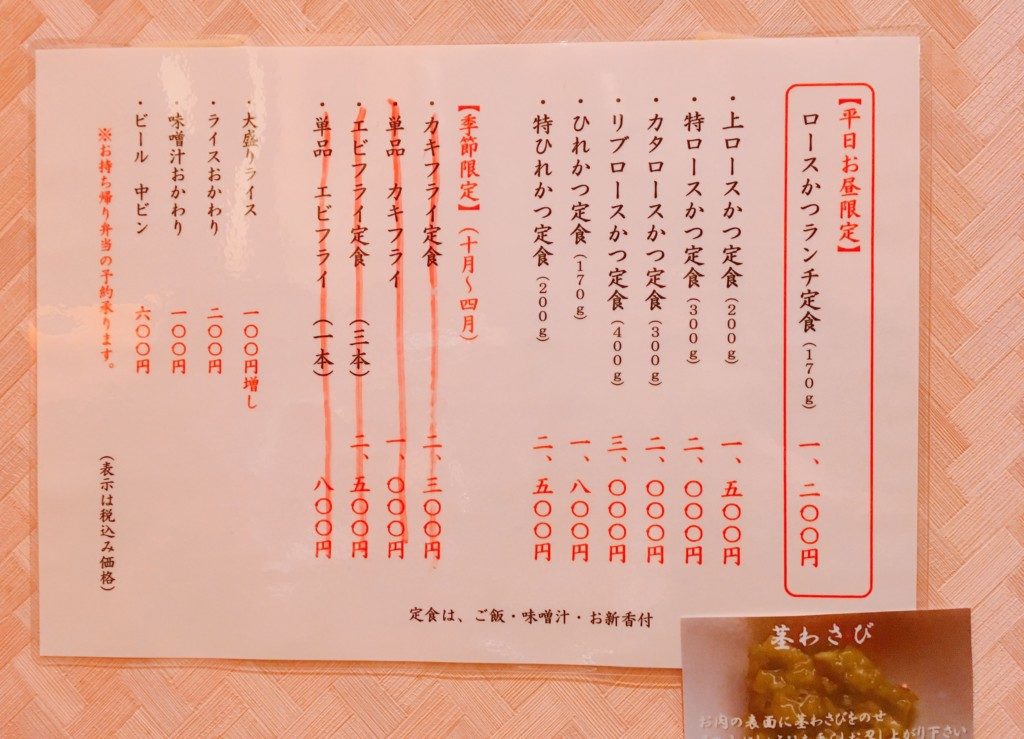 【平日お昼限定】
ロースかつランチ定食(170g) 一、二〇〇円
・上ロースかつ定食(200g) 一、五〇〇円
・特ロースかつ定食(300g) 二、〇〇〇円
・カタロースかつ定食(300g) 二、〇〇〇円
・リブロースかつ定食(400g) 三、〇〇〇円
・ひれかつ定食(170g) 一、八〇〇円
・特ひれかつ定食(200g) 二、五〇〇円
【季節限定】(十月～四月)
・カキフライ定食 二、三〇〇円
・単品 カキフライ 一、〇〇〇円
・エビフライ定食 (三本) 二、五〇〇円
・単品 エビフライ (一本) 八〇〇円
・大盛りライス 一〇〇円増し
・ライスおかわり 二〇〇円
・味噌汁おかわり 一〇〇円
・ビール 中ビン 六〇〇円
※お持ち帰り弁当の予約承ります。
(表示は税込み価格)
定食は、ご飯・味噌汁・お新香付
茎わさび
お肉の表面に茎わさびをのせ
お召し上がり下さい